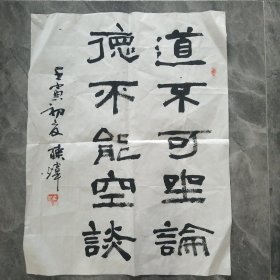 道不可坐論
德不能空談
壬寅初夏